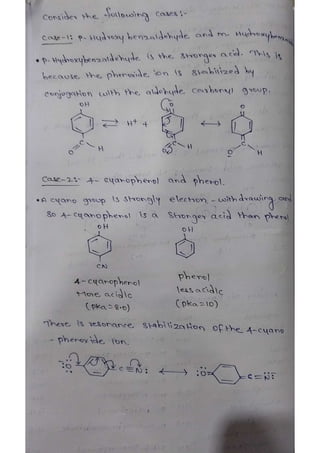 Consider the following cases:-
Case-1: P-Hydroxy benzaldehyde and m-Hydroxybenza
• P-Hydroxybenzaldehyde is the stronger acid. This is
because the phenoxide ion is stabilized by
conjugation with the aldehyde carbonyl group.
OH
⇌ H+ +
↔
O
C
H
O
C
H
O
H
Case-2:- 4-cyanophenol and phenol.
• A cyano group is strongly electron-withdrawing, and
so 4-cyanophenol is a stronger acid than phenol
OH
OH
CN
4-cyanophenol
phenol
More acidic
less acidic
(pka = 8.0)
(pka = 10)
There is resonance stabilization of the 4-cyano
-phenoxide ion.
:O: C≡N: ↔ :O= =C=N: